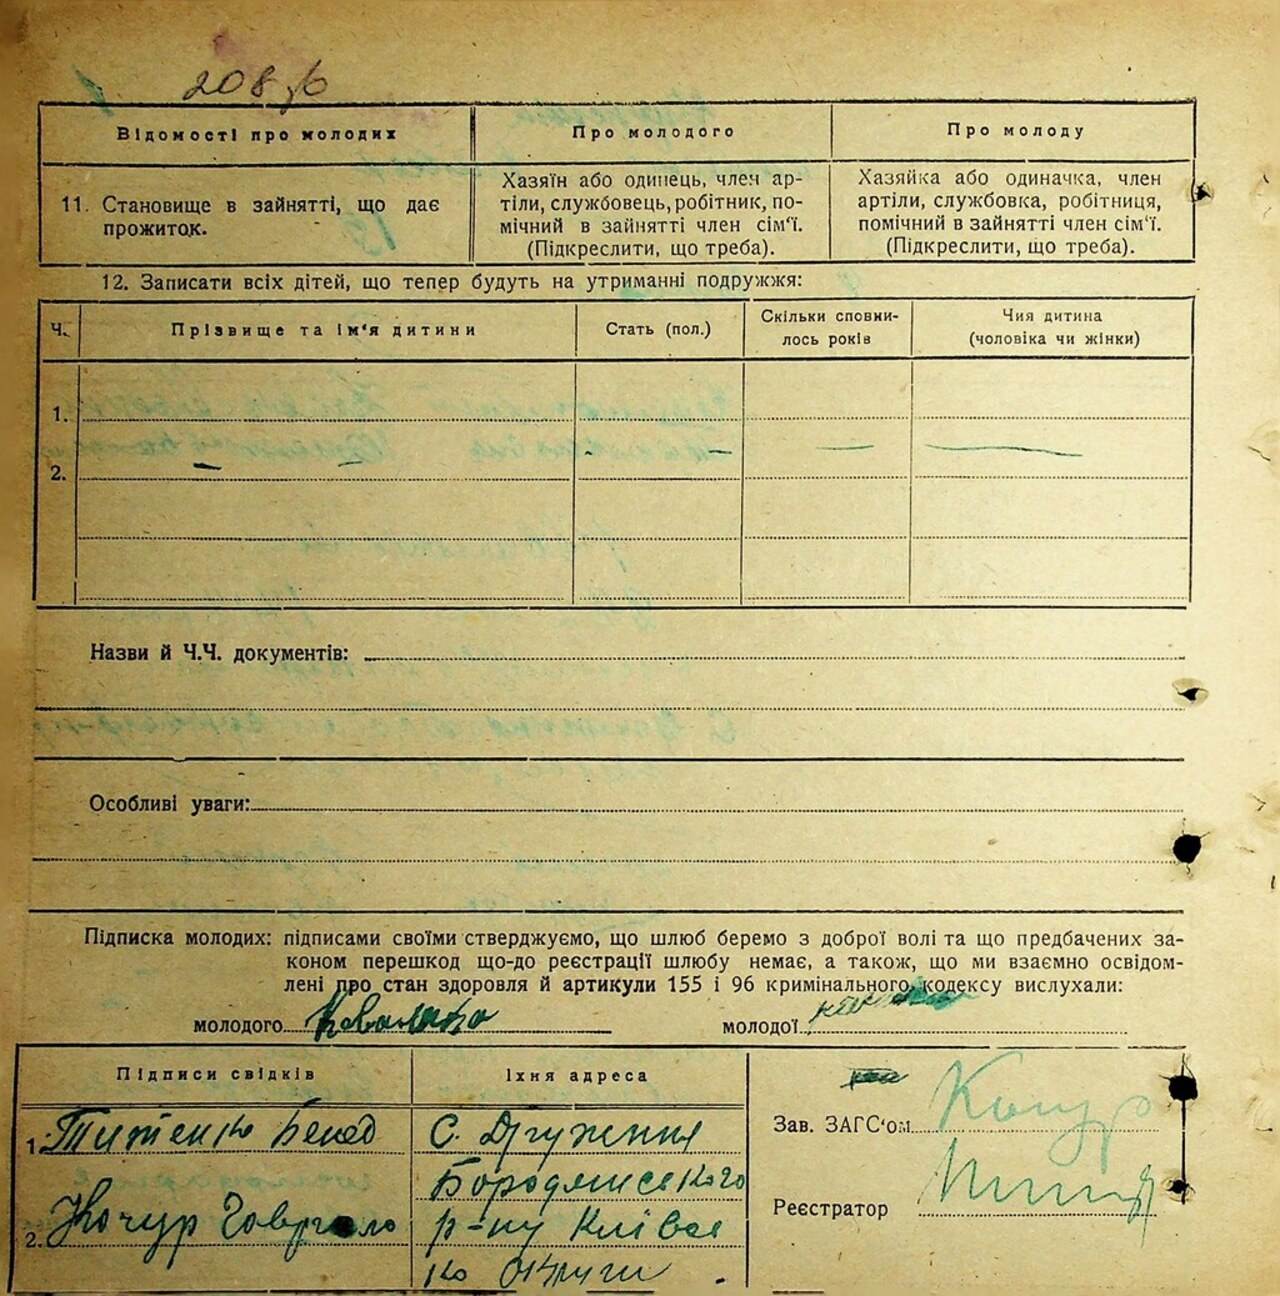 208
Відомості про молодих
Про молодого
Про молоду
11. Становище в зайнятті, що дає
прожиток.
Хазяїн або одинець, член ар-
тіли, службовець, робітник, по-
мічний в зайнятті член сім‘ї.
(Підкреслити, що треба).
Хазяйка або одиначка, член
артіли, службовка, робітниця,
помічний в зайнятті член сім‘ї.
(Підкреслити, що треба).
12. Записати всіх дітей, що тепер будуть на утриманні подружжя:
Ч.
Прізвище та ім‘я дитини
Стать (пол.)
Скільки сповни-
лось років
Чия дитина
(чоловіка чи жінки)
1.
2.
Назви й Ч.Ч. документів:
Особливі уваги:
Підписка молодих: підписами своїми стверджуємо, що шлюб беремо з доброї волі та що предбачених за-
коном перешкод що-до реєстрації шлюбу немає, а також, що ми взаємно освідом-
лені про стан здоровля й артикули 155 і 96 кримінального кодексу вислухали:
молодого
молодої
Підписи свідків
Їхня адреса
1. Титенко
С. Дружння
Бородянсекого
2. Кочур
р-ну Київсь
ко Округи
Зав. ЗАГС‘ом Кочур
Реєстратор